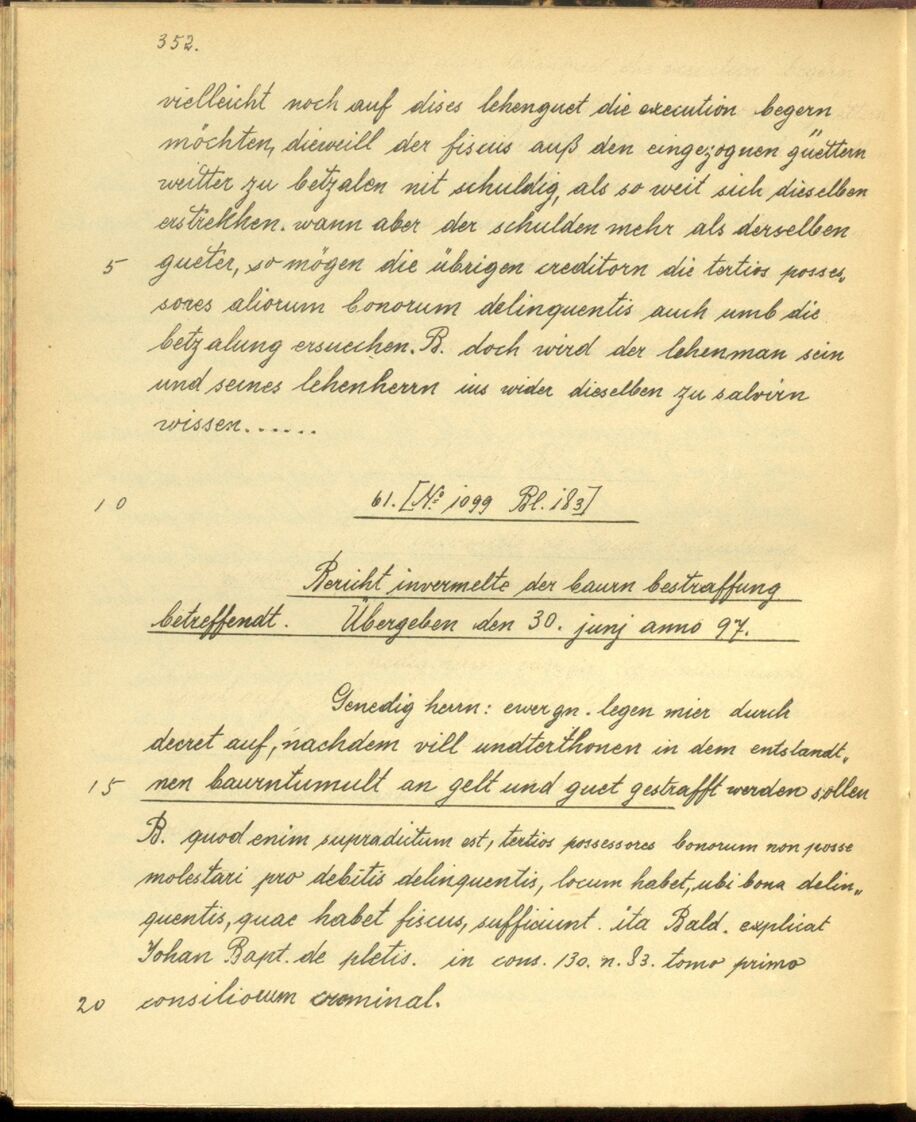 352.
vielleicht noch auf dises lehenguet die execution begern
möchten, dieweill der fiscus auß den eingezognen güettern
weitter zu betzalen nit schuldig, als so weit sich dieselben
erstrekhen. wann aber der schulden mehr als derselben
5 gueter, so mögen die übrigen creditorn die tertios posses„
sores aliorum bonorum delinquentis auch umb die
betzalung ersuechen. B. doch wird der lehenman sein
und seines lehenherrn ius wider dieselben zu salvirn
wissen......
10 61. [No 1099 Bl. 183]
Bericht invermelte der baurn bestraffung
betreffendt. Übergeben den 30. junj anno 97.
Genedig herrn: ewer gn. legen mier durch
decret auf, nachdem vill undterthonen in dem entstandt„
15 nen baurntumult an gelt und guet gestrafft werden sollen
B. quod enim supradictum est, tertios possessores bonorum non posse
molestari pro debitis delinquentis, locum habet, ubi bona delin„
quentis, quae habet fiscus, sufficiunt. ita Bald. explicat
Johan Bapt. de pletis. in cons. 130. n. 83. tomo primo
20 consiliorum criminal.